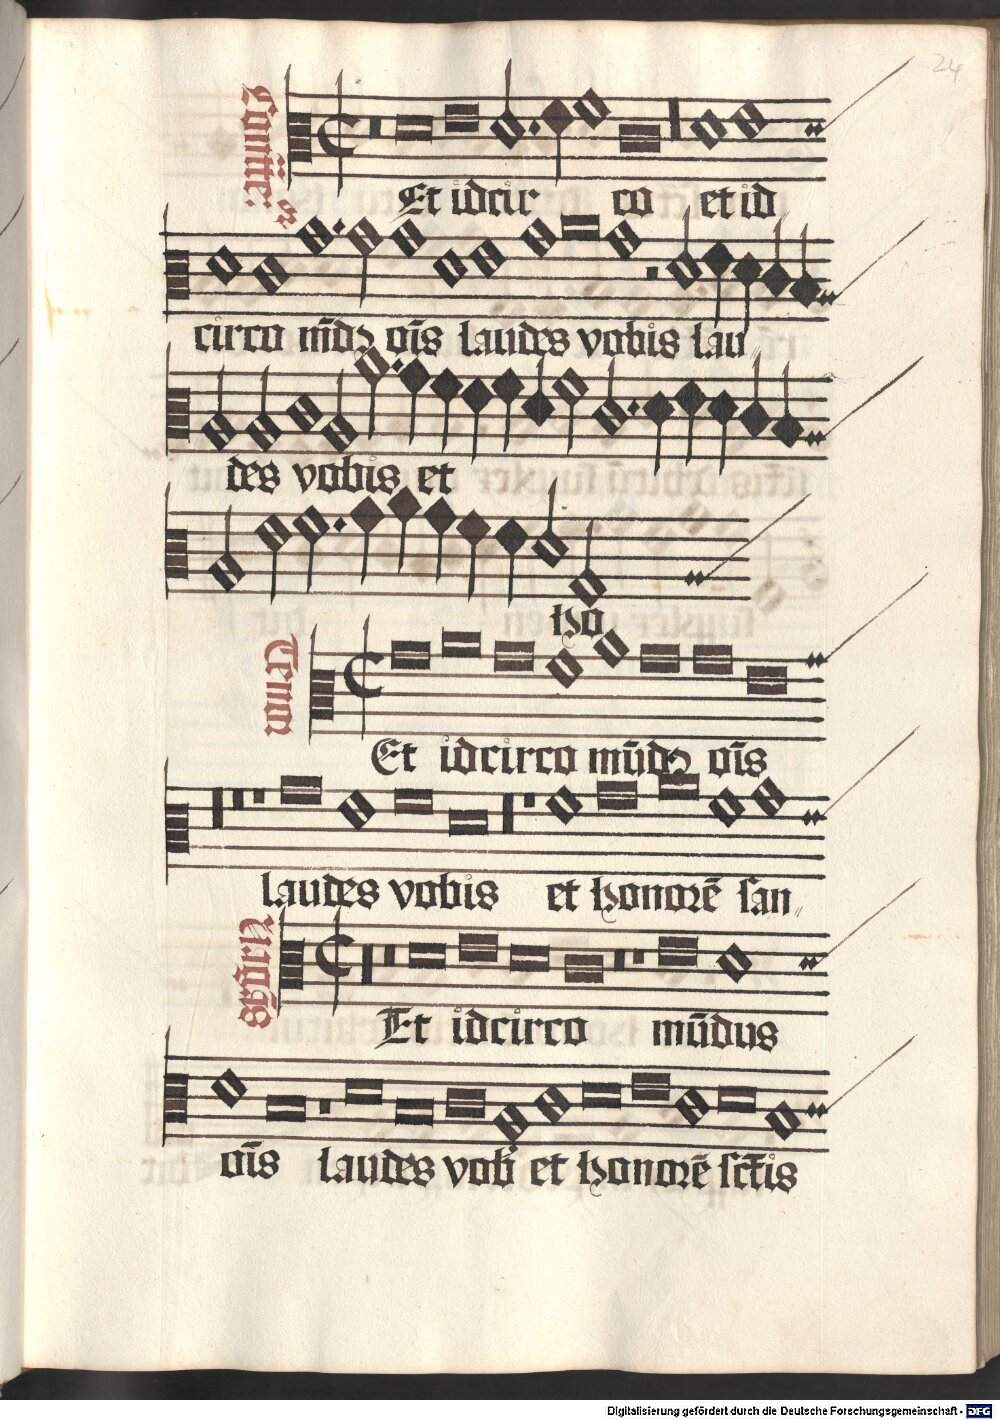 24
Et idcir co et id
circo laudes vobis lau
des vobis et
ho
Tenor
Et idcirco mūdꝫ oīs
laudes vobis et honorē san
Et idcirco mūdus
oīs laudes vob et honorē sctīs
Digitalisierung gefördert durch die Deutsche Forschungsgemeinschaft - DFG